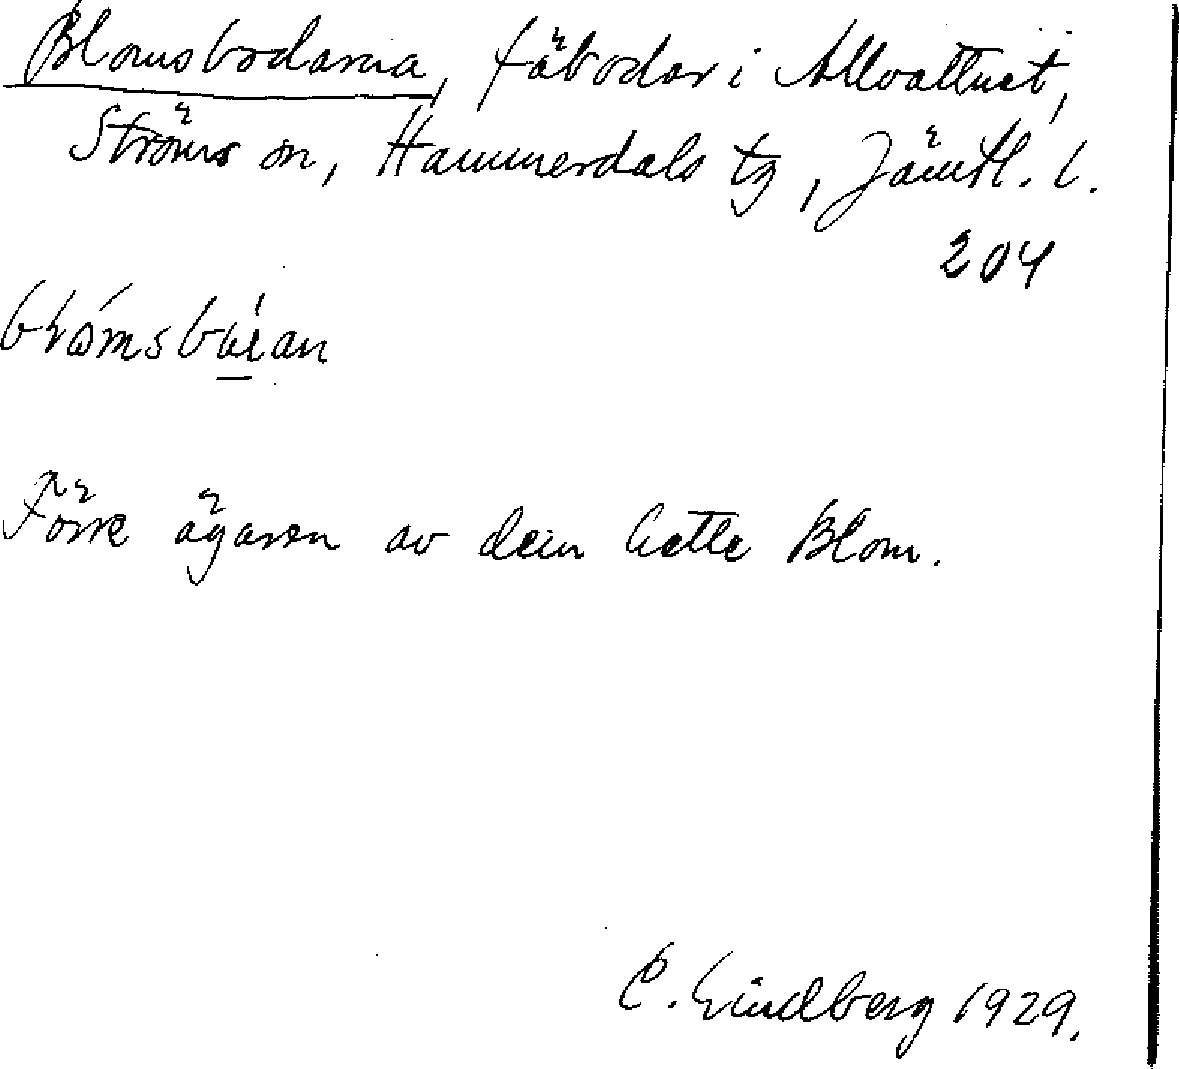 Blomsbodarna, fäbodar i Allvattnet,
Ströms sn, Hammerdals tg, Jämtl. l.
204
Förre ägaren av dem hette Blom.
E. Lindberg 1929.